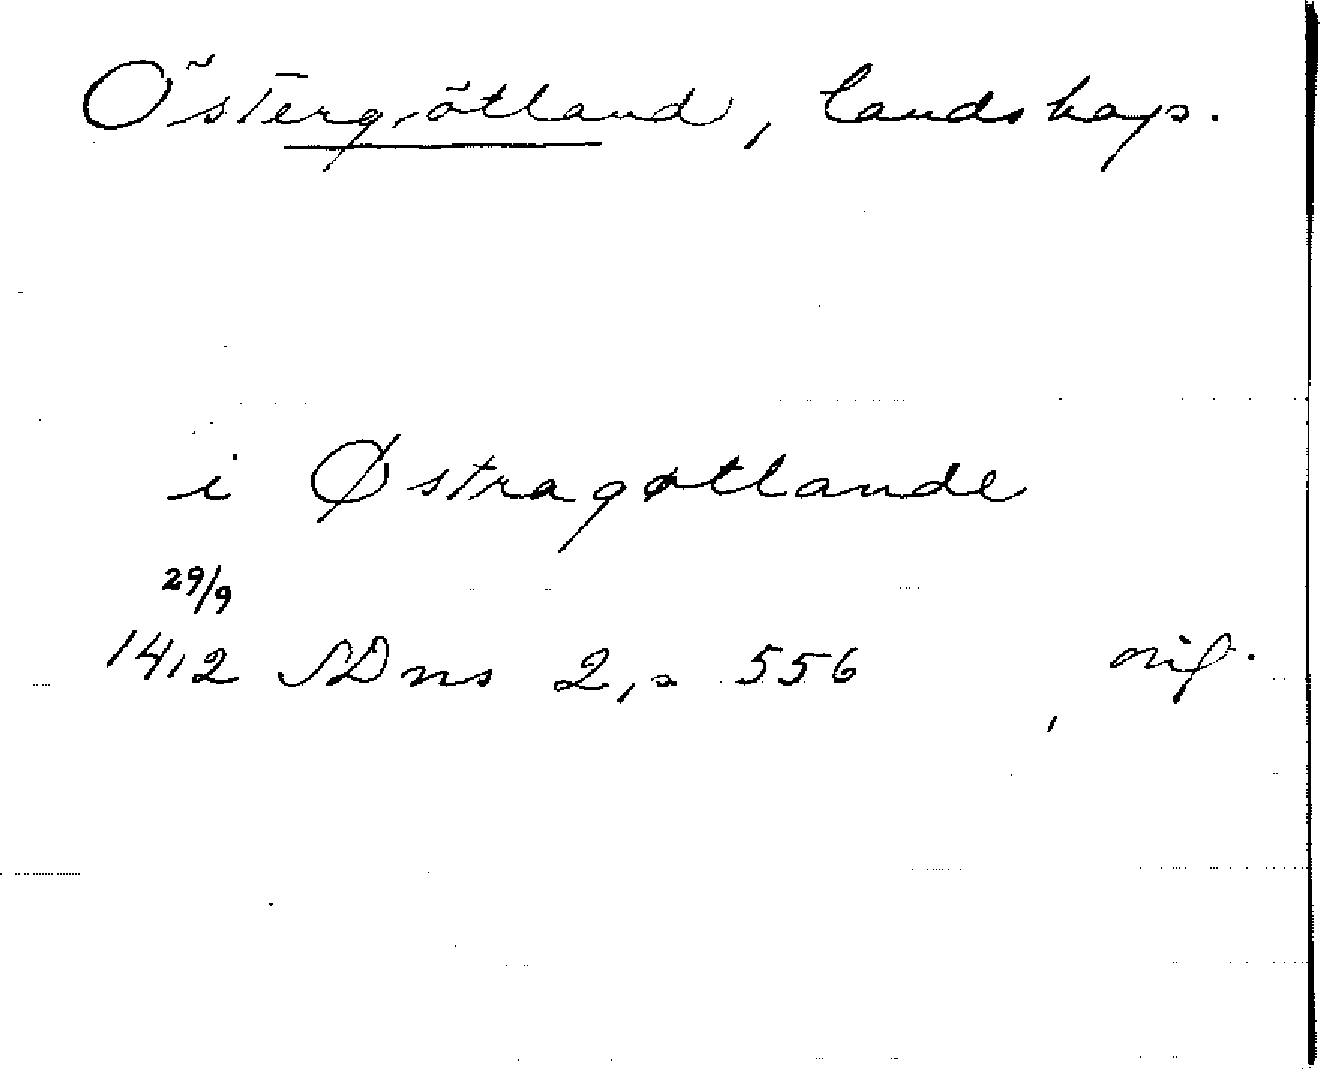 Östergötland, landskap.
i Østragøtlande
29/9
1412 SDns 2, s 556, orig.